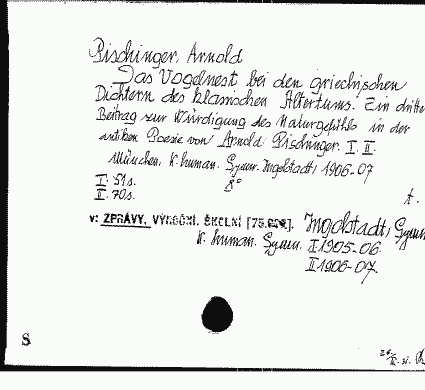 Pischinger, Arnold
Das Vogelnest bei den griechischen
Dichtern des klassischen Altertums. Ein dritter
Beitrag zur Würdigung des Naturgefühls in der
antiken Poesie von Arnold Pischinger. I. II.
München, K. human. Gymn. Ingolstadt, 1906-07
I. 51 s. 8°
II. 70 s. t.
v: ZPRÁVY, VÝROČNÍ, ŠKOLNÍ Ingolstadt, Gymn
K. human. Gymn. I 1905-06.
II 1906-07.
S